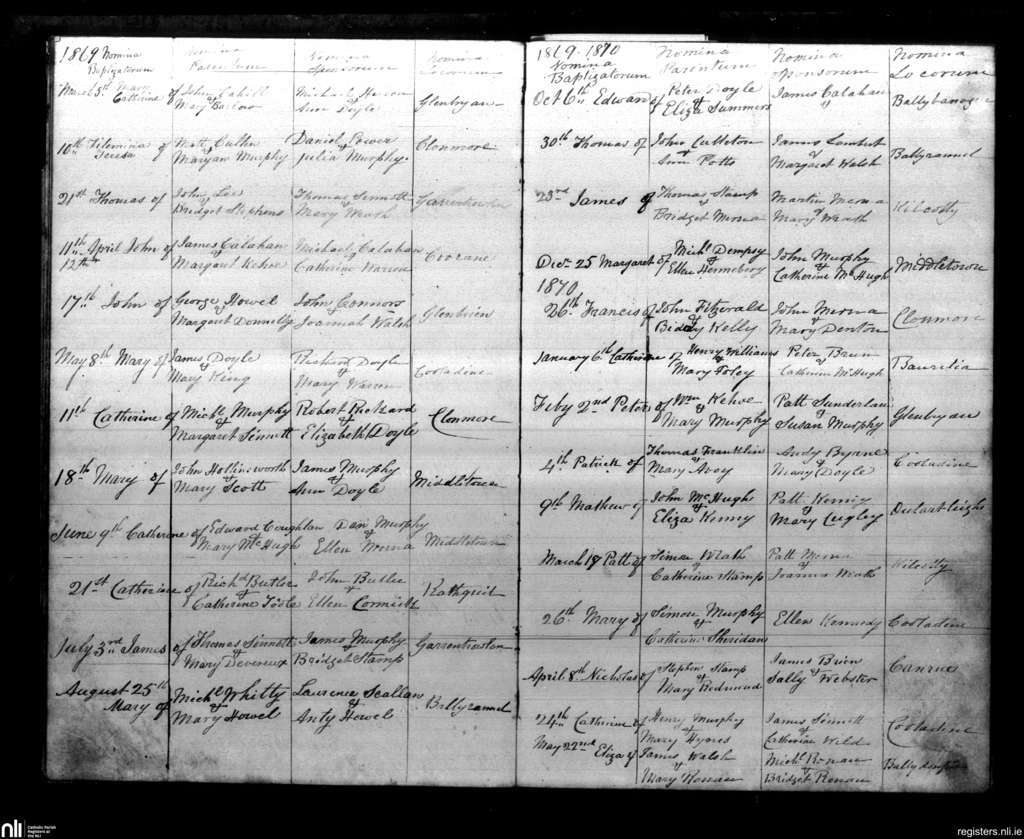 1869 Nomina Baptizatorum Nomina Parentum Nomina Sponsorum Nomina Locorum
March 3rd Mary Catherine of John Cahill & Mary Michael & Ann Doyle Glenbryan
10th Filemina Teresa of Matt Culhn & Maryan Murphy Daniel Power & Julia Murphy Clonmore
21st Thomas of John Lee & Bridget Stephens Thomas Sinnott & Mary Wrath
11th April John of James Calahan Michael Calahan Coorane
12th & Margaret Kehoe & Catherine
17th John of George Howel & Margaret Donnelly John Connors & Joannah Walsh Glenbrien
May 8th Mary of James Doyle & Mary King Doyle & Mary Cooladine
11th Catherine of Michl Murphy & Margaret Sinnett Robert Rickzard & Elizabeth Doyle Clonmore
18th Mary of John Hollinsworth & Mary Scott James Murphy & Ann Doyle Middletown
June 9th Catherine of Edward Coughlan & Mary McHugh Dan Murphy Ellen Middletown
21st Catherine of Richd Butler & Catherine Toole John Butler & Ellen Cormick
July 3rd James of Thomas Sinnett & Mary Devereux James Murphy & Bridget Stamp
August 25th Mary of Michl Whitty & Mary Howel Laurence Scallan & Anty Howel Ballyrannel
1869-1870 Nomina Baptizatorum Nomina Parentum Nomina Sponsorum Nomina Locorum
Oct 6th Edward of Peter Doyle & Eliza Summers James Calahan
30th Thomas of John Culleton & Ann Potts James Lambert & Margaret Walsh Ballyrannel
23rd James of Thomas Stamp & Bridget Merna Martin Merna & Mary Wrath Kilcotty
Decr 25 Margaret of Michl Dempsy & Ellen Henneberg John Murphy & Catherine McHugh Middletown
1870
26th Francis of John Fitzerald & Biddy Kelly John Merna & Mary Denton Clonmore
January 6th Catherine of Henry Williams & Mary Foley Peter Brun Catherine McHugh
Feby 2nd Peter of Wm Kehoe & Mary Murphy Patt Sunderlan Susan Murphy Glenbryan
4th Patrick of Thomas Franklin & Mary Avoy Andy Byrne & Mary Doyle Cooladine
9th Mathew of John McHugh & Eliza Kenny Patt Kenny & Mary Oulartleigh
March 18 Patt of Simon Wrath & Catherine Stamp Patt Merna & Joanna Wrath Kilcotty
26th Mary of Simon Murphy & Catherine Sheridan Ellen Kennedy Cooladine
April 8th Nicholas of Stephen Stamp & Mary Redmund James Brien & Sally Webster
24th Catherine of Henry Murphy & Mary Hynes James Sinnett & Catherine Wild Cooladine
May 22nd Eliza of James Walsh & Mary Ronan Michl Ronan & Bridget Ronan
nli Catholic Parish Registers at the NLI
registers.nli.ie